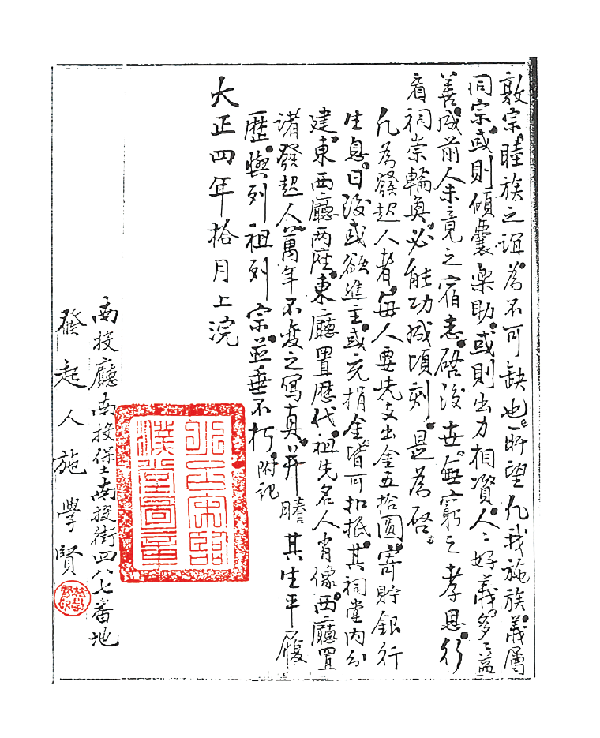 敦宗睦族之誼。為不可缺也。所望凡我施族。義屬
同宗。或則傾囊樂助。或則出力相資。人人好義。多多益
善。成前人未竟之宿志。啓後世無窮之孝思。行
看祠宗輪奐。必能功成頃刻。是為啓。
凡為發起人者。每人要先支出金五拾圓。寄貯銀行
生息。日後或欲進主。或充捐金。皆可扣抵。其祠堂內分
建東西廳兩座。東廳置歷代祖先名人肖像。西廳置
諸發起人萬年不變之寫真。并謄其生平履
歷。與列祖列宗並垂不朽。附記
大正四年拾月上浣
南投廳南投保土南投街四八七番地
發起人施學賢